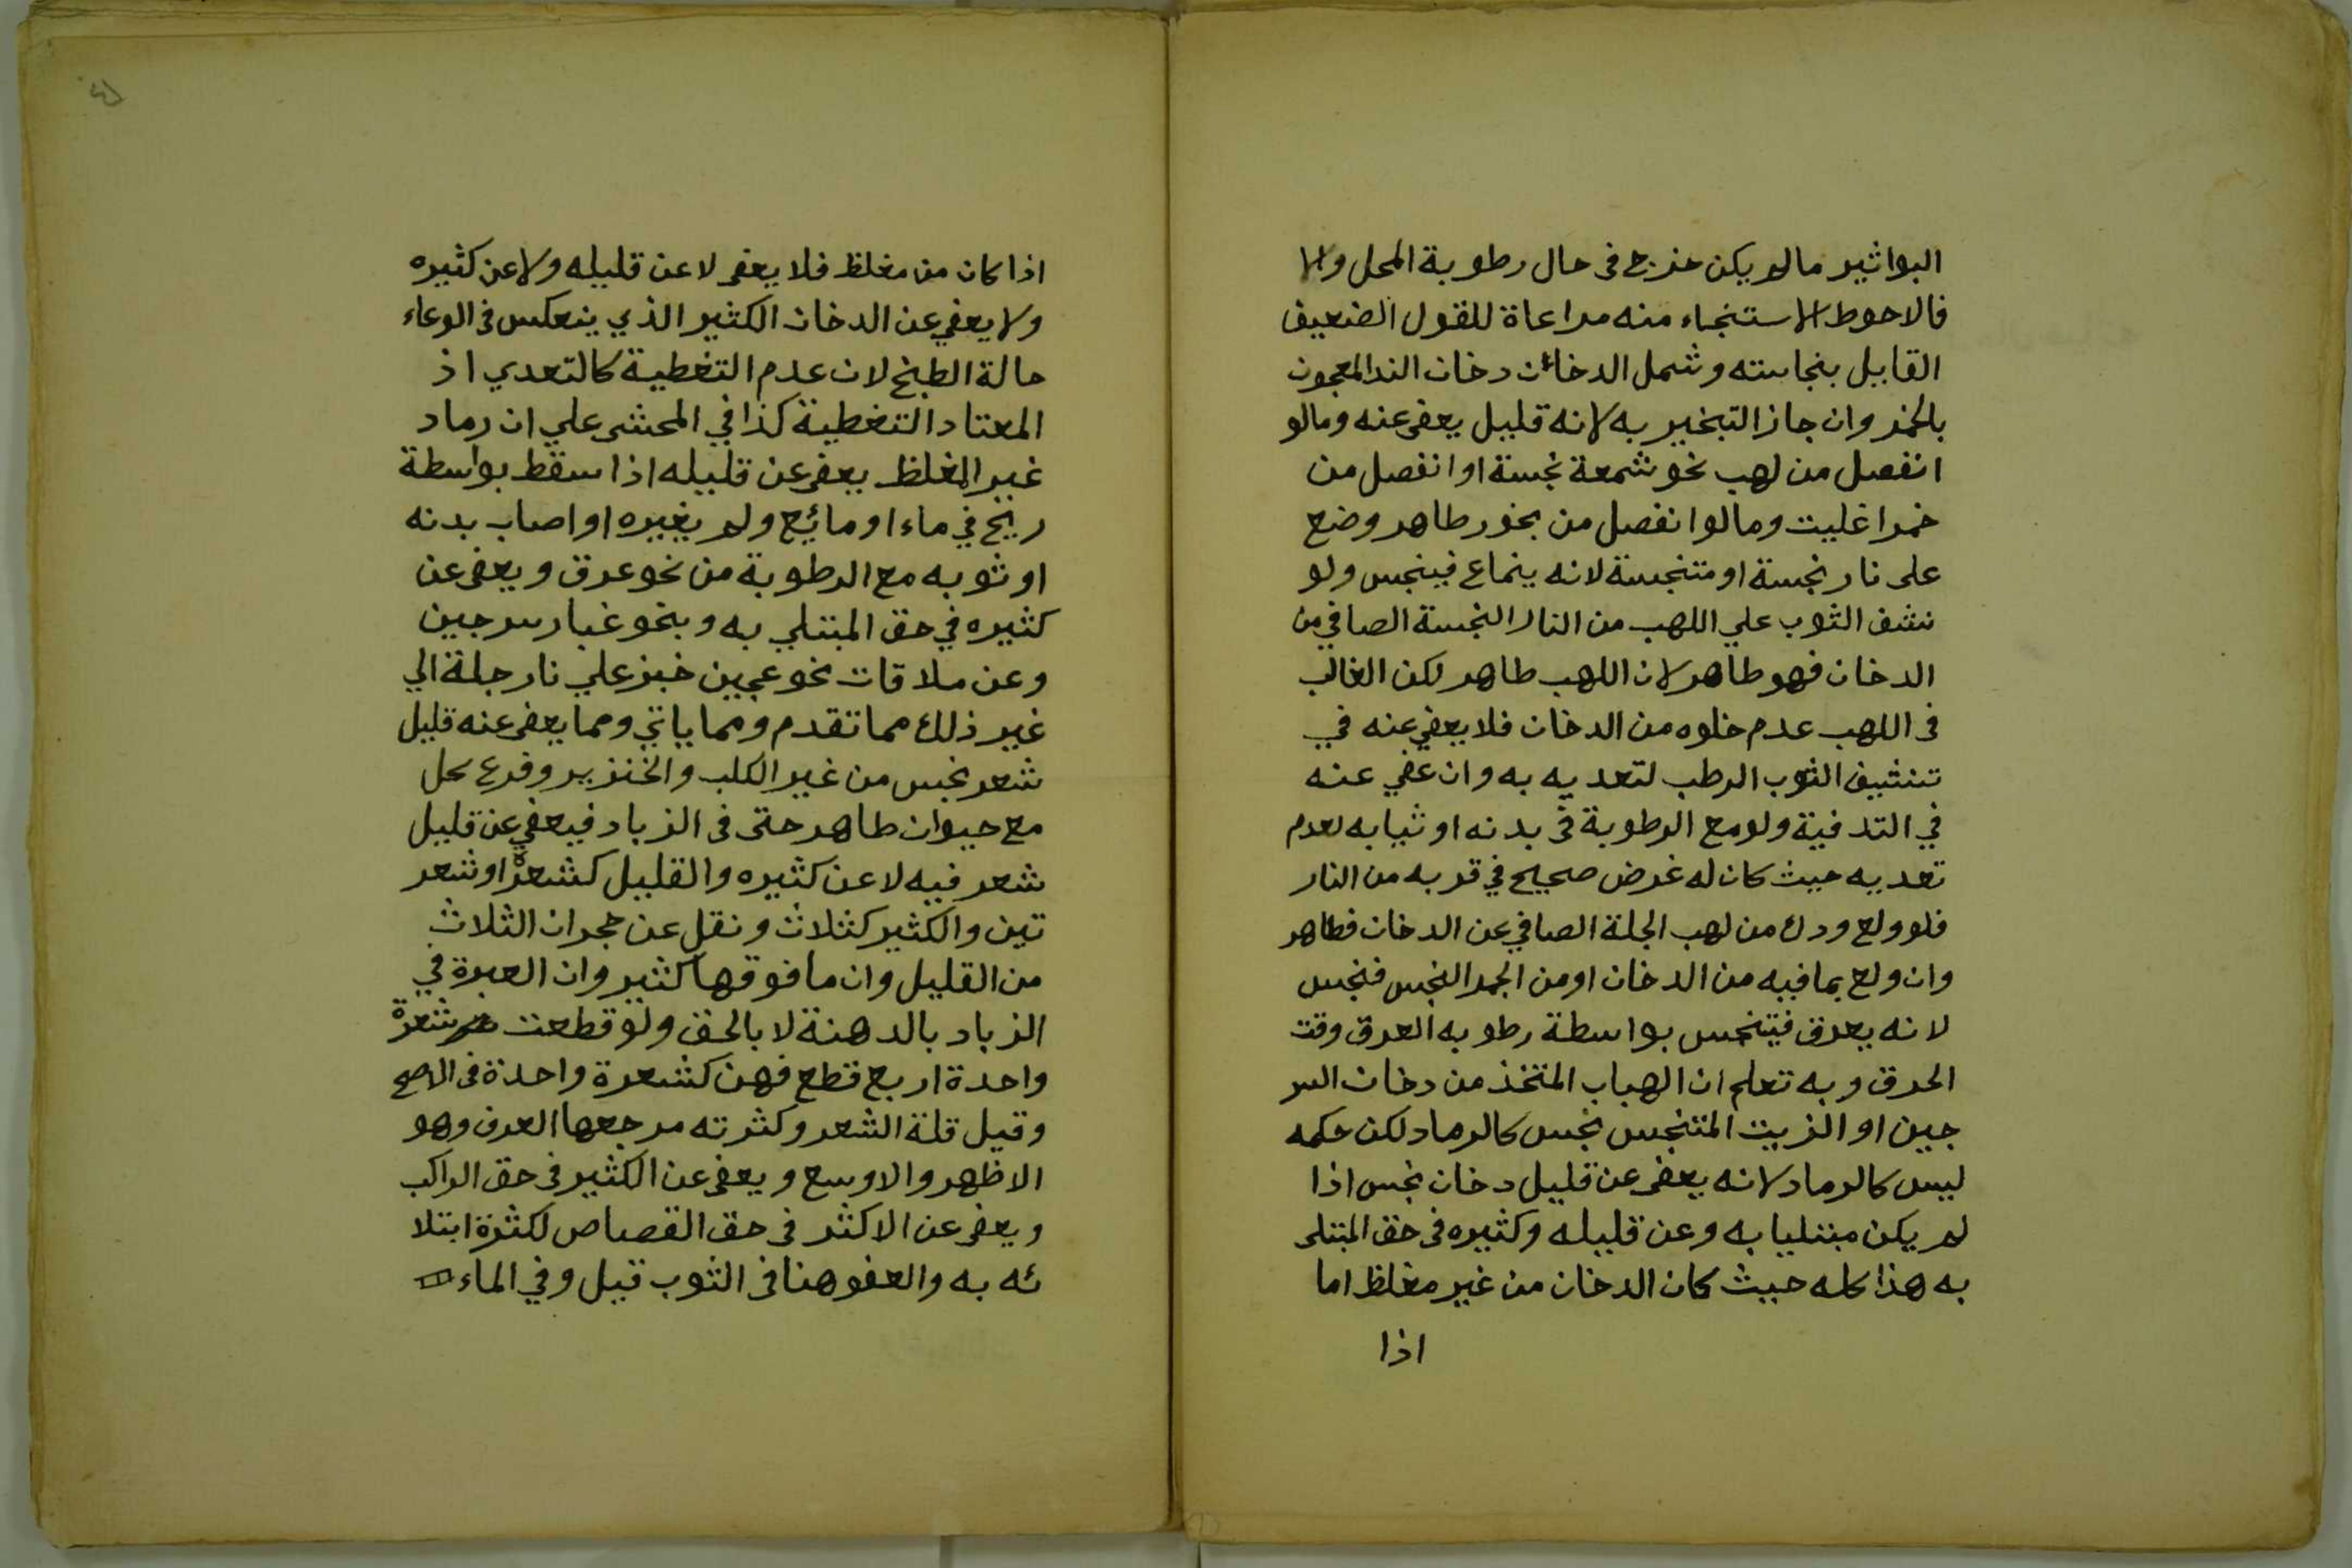 البواثير مالم يكن خرج فى حال رطوبة المحل والا
فالاحوط الاستنجاء منه مراعاة للقول الضعيف
القايل بنجاسته وشمل الدخان دخان الند المعجون
بالخمر وان جاز التبخير به لانه قليل يعفى عنه ومالو
انفصل من لهب نحو شمعة نجسة او انفصل من
خمرا غليت ومالوا نفصل من بخور طاهر وضع
على نار نجسة او متنجسة لانه ينماع فينجس ولو
نشف الثوب علي اللهب من النار النجسة الصافي من
الدخان فهو طاهر لان اللهب طاهر لكن الغالب
فى اللهب عدم خلوه من الدخان فلا يعفي عنه في
تنشيف الثوب الرطب لتعديه به وان عفي عنه
في التدفية ولو مع الرطوبة فى بدنه او ثيابه لعدم
تعديه حيث كان له غرض صحيح في قربه من النار
فلو ولع ودك من لهب الجلة الصافي عن الدخان فطاهر
وان ولع بما فيه من الدخان او من الجمر النجس فنجس
لانه يعرق فيتنجس بواسطة رطوبه العرق وقت
الحرق وبه تعلم ان الهباب المتخذ من دخان السر
جين او الزيت المتنجس نجس كالرماد لكن حكمه
ليس كالرماد لانه يعفى عن قليل دخان نجس اذا
لم يكن مبتليا به وعن قليله وكثيره فى حق المبتلى
به هذا كله حيث كان الدخان من غير مغلظ اما
اذا
اذا كان من مغلظ فلا يعفى لا عن قليله ولا عن كثيره
ولا يعفي عن الدخان الكثير الذي ينعكس فى الوعاء
حالة الطبخ لان عدم التغطية كالتعدي اذ
المعتاد التغطية كذا في المحشى علي ان رماد
غير المغلظ يعفى عن قليله اذا سقط بواسطة
ريح في ماء او مائع ولم يغيره او اصاب بدنه
او ثوبه مع الرطوبة من نحو عرق ويعفى عن
كثيره في حق المبتلي به وبنحو غبار سرجين
وعن ملاقات نحو عجين خبز علي نار جلة الي
غير ذلك مما تقدم ومما ياتي ومما يعفى عنه قليل
شعر نجس من غير الكلب والخنزير وفرع كل
مع حيوان طاهر حتى فى الزباد فيعفي عن قليل
شعر فيه لا عن كثيره والقليل كشعرة او شعر
تين والكثير كثلاث ونقل عن حجران الثلاث
من القليل وان ما فوقها كثير وان العبرة في
الزباد بالدهنة لا بالحق ولو قطعت شعرة
واحدة اربع قطع فهن كشعرة واحدة فى الاصح
وقيل قلة الشعر وكثرته مرجعها العرف وهو
الاظهر والاوسع ويعفى عن الكثير فى حق الراكب
ويعفى عن الاكثر فى حق القصاص لكثرة ابتلا
ئه به والعفو هنا فى الثوب قيل وفي الماء